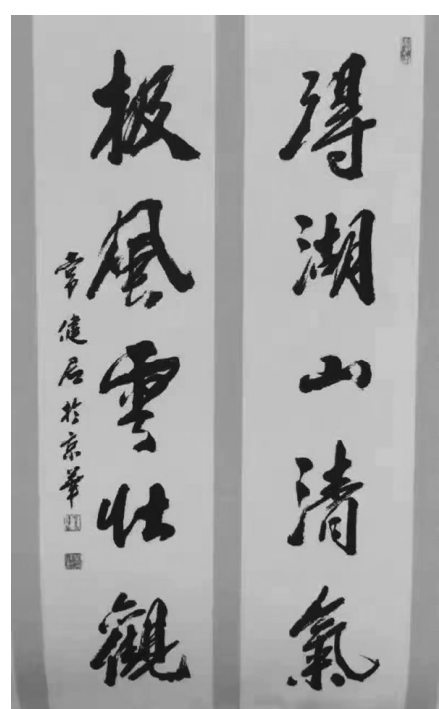 得湖山清氣
极風雲壯觀
常健居於京華